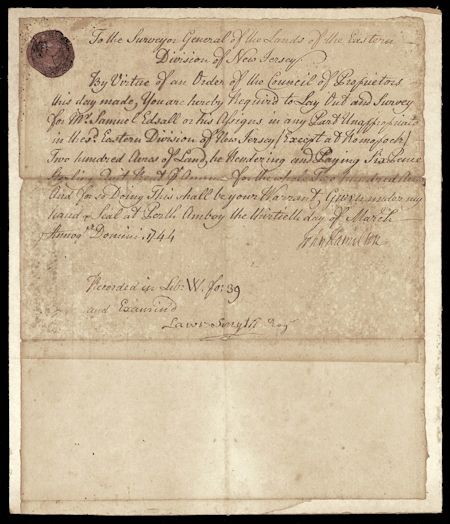 To the Surveyor General of the Lands of the Eastern
Division of New Jersey.
By Virtue of an Order of the Council of Proprietors
this day made, You are hereby Required to Lay Out and Survey
for Mr. Samuel Edsall or his Assigns in any Part Unappropriated
in the sd. Eastern Division of New Jersey (Except at Romopock)
Two hundred Acres of Land, he Rendering and Paying Six Pence
Sterling Quit Rent Annum for the Two Hundred Acres
And for so Doing This shall be your Warrant, Given under my
Hand & Seal at Perth Amboy the thirtieth day of March
Domini 1744
John Hamilton
Recorded in Lib: W. fo: 39
and Examined
Lawr Smyth Regr